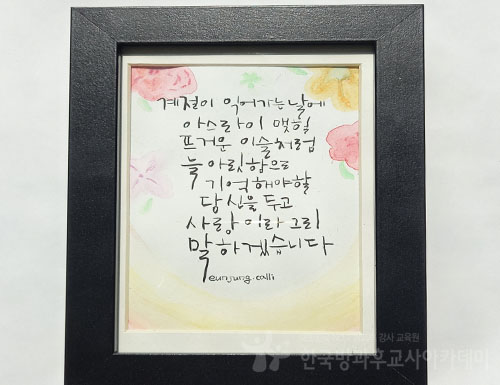 계절이 익어가는 날에
아스라이 맺힌
뜨거운 이슬처럼
늘 아릿함으로
기억해야할
당신을 두고
사랑이라 그리
말하겠습니다
eunjung.calli
강사 교육원
한국방과후교사아카데미